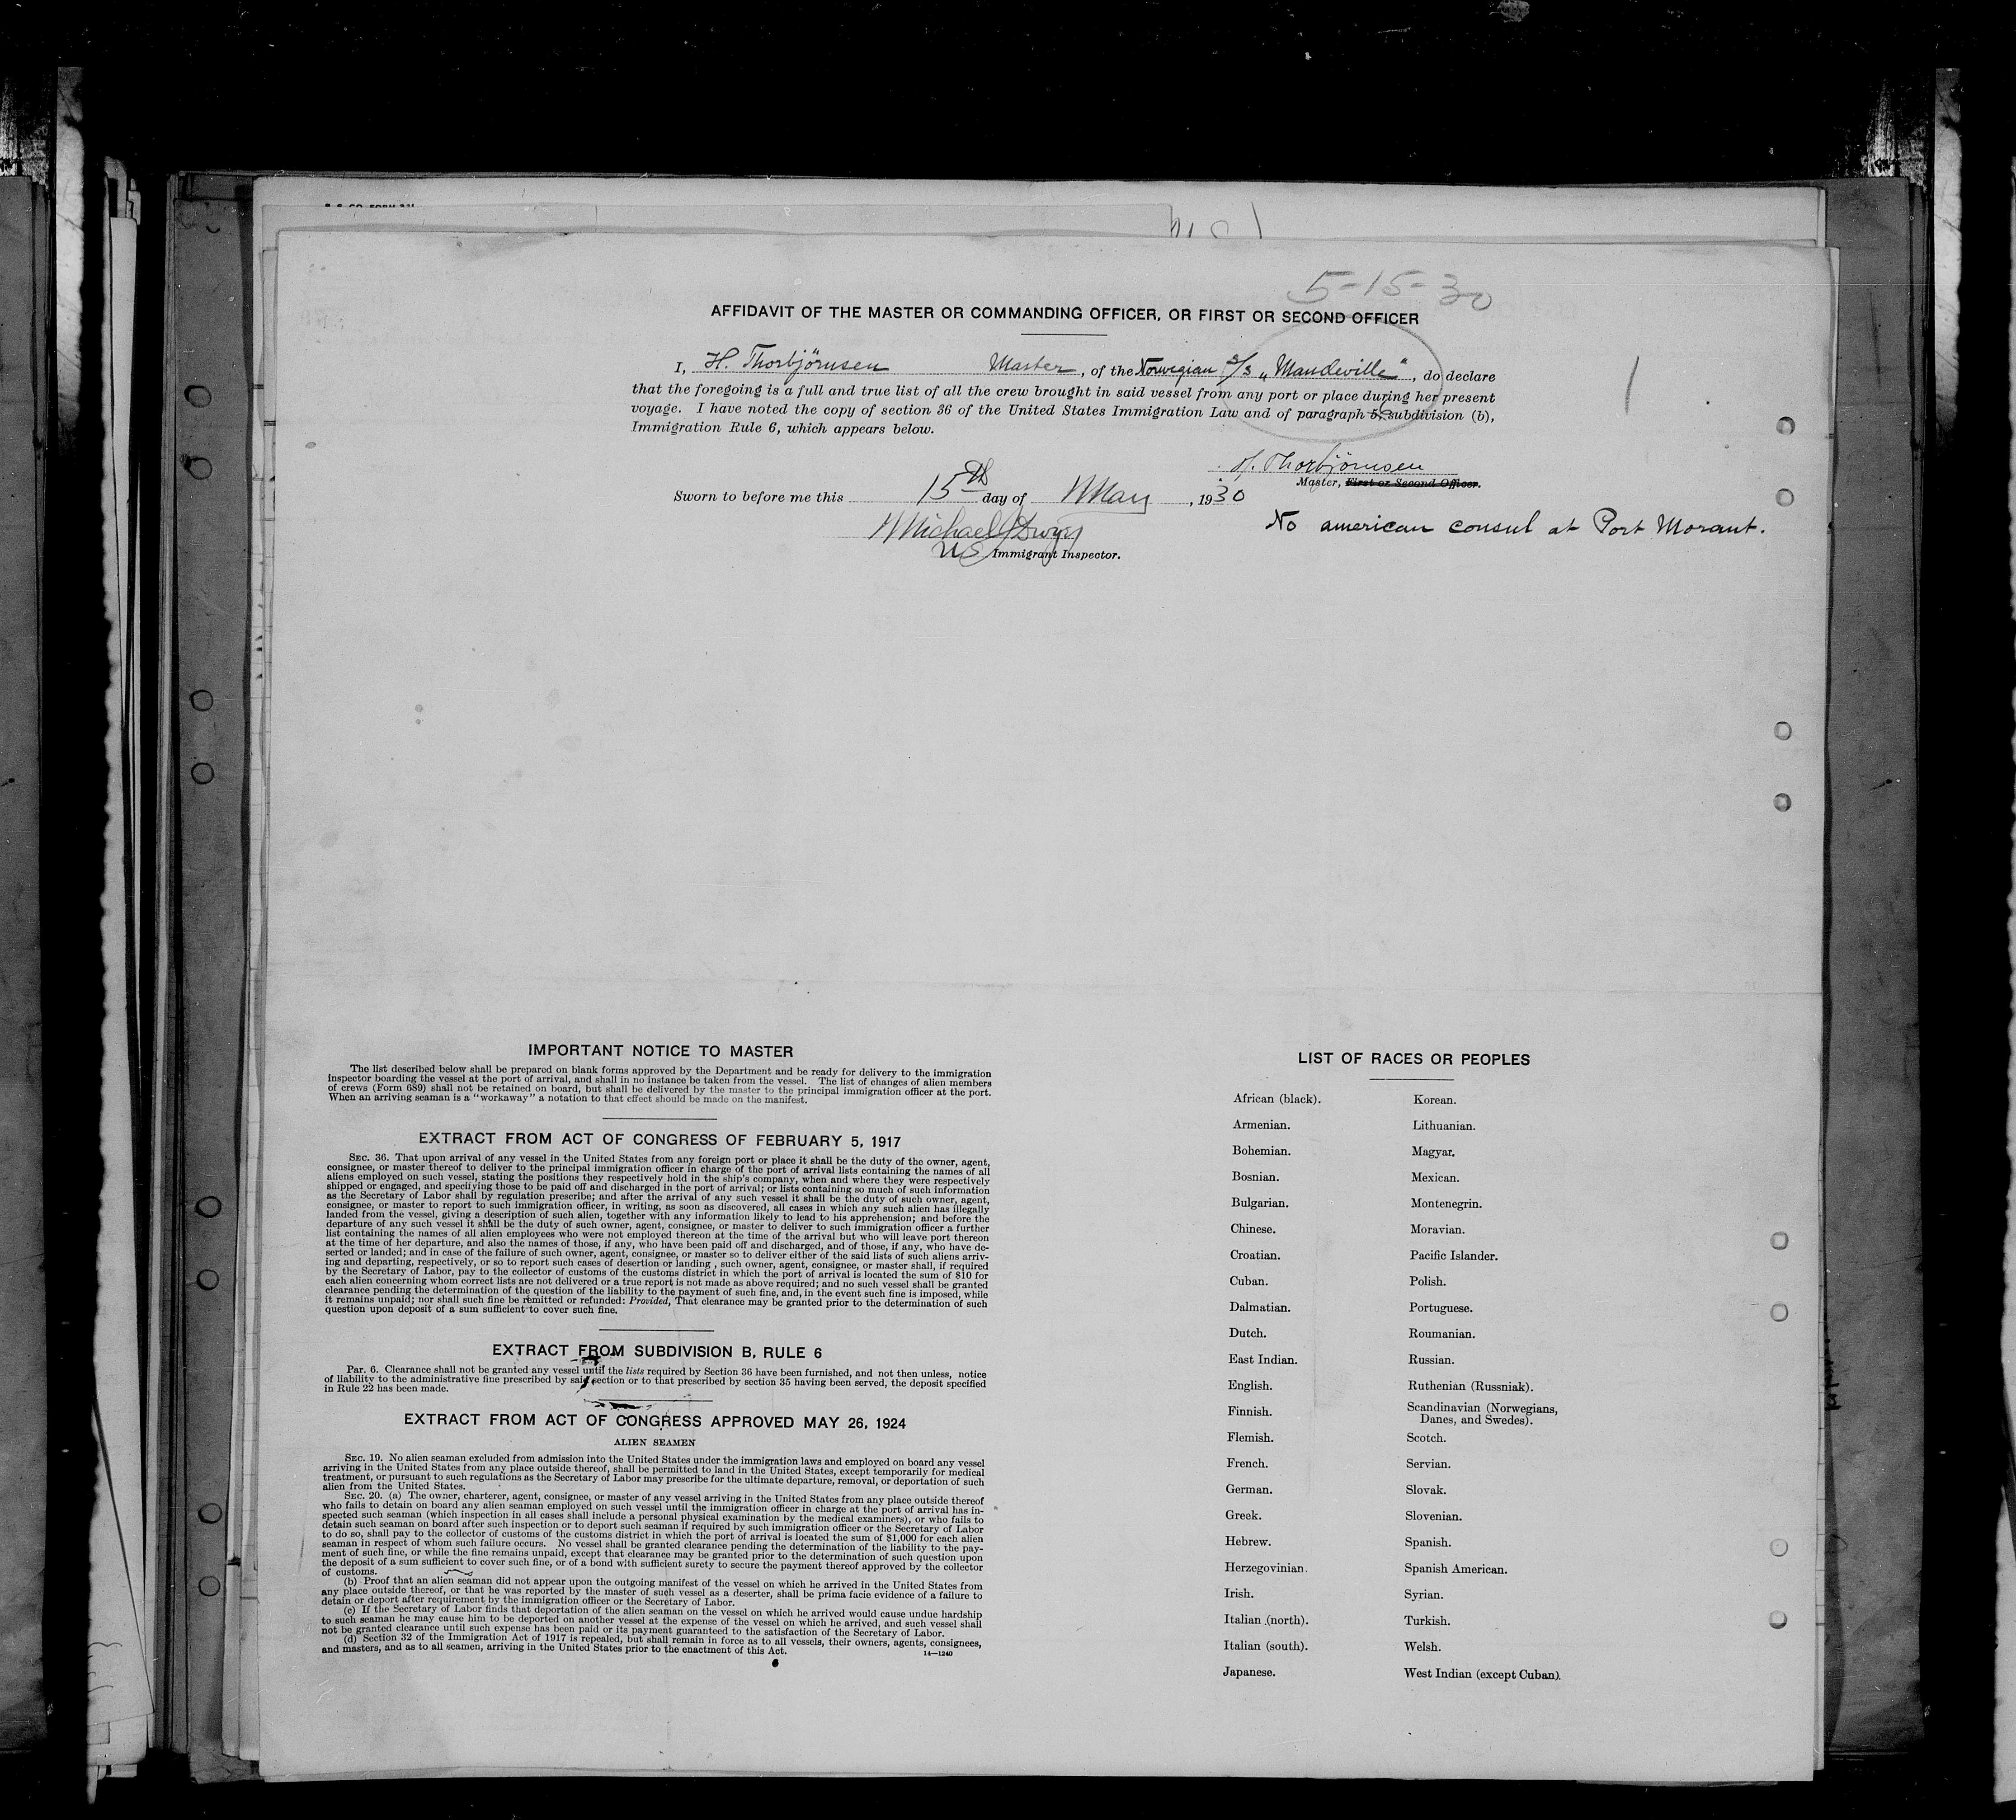 5-15-30
AFFIDAVIT OF THE MASTER OR COMMANDING OFFICER, OR FIRST OR SECOND OFFICER
I, H. Thorbjörnsen Master, of the Norwegian S/S „Mandeville", do declare
that the foregoing is a full and true list of all the crew brought in said vessel from any port or place during her present
voyage. I have noted the copy of section 36 of the United States Immigration Law and of paragraph 5, subdivision (b),
Immigration Rule 6, which appears below.
1
H. Thorbjörnsen
Master, First or Second Officer.
Sworn to before me this 15th day of May, 1930
Michael
US Immigrant Inspector.
No american consul at Port Morant.
IMPORTANT NOTICE TO MASTER
The list described below shall be prepared on blank forms approved by the Department and be ready for delivery to the immigration
inspector boarding the vessel at the port of arrival, and shall in no instance be taken from the vessel. The list of changes of alien members
of crews (Form 689) shall not be retained on board, but shall be delivered by the master to the principal immigration officer at the port.
When an arriving seaman is a "workaway" a notation to that effect should be made on the manifest.
EXTRACT FROM ACT OF CONGRESS OF FEBRUARY 5, 1917
SEC. 36. That upon arrival of any vessel in the United States from any foreign port or place it shall be the duty of the owner, agent,
consignee, or master thereof to deliver to the principal immigration officer in charge of the port of arrival lists containing the names of all
aliens employed on such vessel, stating the positions they respectively hold in the ship's company, when and where they were respectively
shipped or engaged, and specifying those to be paid off and discharged in the port of arrival; or lists containing so much of such information
as the Secretary of Labor shall by regulation prescribe; and after the arrival of any such vessel it shall be the duty of such owner, agent,
consignee, or master to report to such immigration officer, in writing, as soon as discovered, all cases in which any such alien has illegally
landed from the vessel, giving a description of such alien, together with any information likely to lead to his apprehension; and before the
departure of any such vessel it shall be the duty of such owner, agent, consignee, or master to deliver to such immigration officer a further
list containing the names of all alien employees who were not employed thereon at the time of the arrival but who will leave port thereon
at the time of her departure, and also the names of those, if any, who have been paid off and discharged, and of those, if any, who have de-
serted or landed; and in case of the failure of such owner, agent, consignee, or master so to deliver either of the said lists of such aliens arriv-
ing and departing, respectively, or so to report such cases of desertion or landing , such owner, agent, consignee, or master shall, if required
by the Secretary of Labor, pay to the collector of customs of the customs district in which the port of arrival is located the sum of $10 for
each alien concerning whom correct lists are not delivered or a true report is not made as above required; and no such vessel shall be granted
clearance pending the determination of the question of the liability to the payment of such fine, and, in the event such fine is imposed, while
it remains unpaid; nor shall such fine be remitted or refunded: Provided, That clearance may be granted prior to the determination of such
question upon deposit of a sum sufficient to cover such fine.
EXTRACT FROM SUBDIVISION B, RULE 6
Par. 6. Clearance shall not be granted any vessel until the lists required by Section 36 have been furnished, and not then unless, notice
of liability to the administrative fine prescribed by said section or to that prescribed by section 35 having been served, the deposit specified
in Rule 22 has been made.
EXTRACT FROM ACT OF CONGRESS APPROVED MAY 26, 1924
ALIEN SEAMEN
SEC. 19. No alien seaman excluded from admission into the United States under the immigration laws and employed on board any vessel
arriving in the United States from any place outside thereof, shall be permitted to land in the United States, except temporarily for medical
treatment, or pursuant to such regulations as the Secretary of Labor may prescribe for the ultimate departure, removal, or deportation of such
alien from the United States.
SEC. 20. (a) The owner, charterer, agent, consignee, or master of any vessel arriving in the United States from any place outside thereof
who fails to detain on board any alien seaman employed on such vessel until the immigration officer in charge at the port of arrival has in-
spected such seaman (which inspection in all cases shall include a personal physical examination by the medical examiners), or who fails to
detain such seaman on board after such inspection or to deport such seaman if required by such immigration officer or the Secretary of Labor
to do so, shall pay to the collector of customs of the customs district in which the port of arrival is located the sum of $1,000 for each alien
seaman in respect of whom such failure occurs. No vessel shall be granted clearance pending the determination of the liability to the pay-
ment of such fine, or while the fine remains unpaid, except that clearance may be granted prior to the determination of such question upon
the deposit of a sum sufficient to cover such fine, or of a bond with sufficient surety to secure the payment thereof approved by the collector
of customs.
(b) Proof that an alien seaman did not appear upon the outgoing manifest of the vessel on which he arrived in the United States from
any place outside thereof, or that he was reported by the master of such vessel as a deserter, shall be prima facie evidence of a failure to
detain or deport after requirement by the immigration officer or the Secretary of Labor.
(c) If the Secretary of Labor finds that deportation of the alien seaman on the vessel on which he arrived would cause undue hardship
to such seaman he may cause him to be deported on another vessel at the expense of the vessel on which he arrived, and such vessel shall
not be granted clearance until such expense has been paid or its payment guaranteed to the satisfaction of the Secretary of Labor.
(d) Section 32 of the Immigration Act of 1917 is repealed, but shall remain in force as to all vessels, their owners, agents, consignees,
and masters, and as to all seamen, arriving in the United States prior to the enactment of this Act.
14—1240
LIST OF RACES OR PEOPLES
African (black).
Armenian.
Bohemian.
Bosnian.
Bulgarian.
Chinese.
Croatian.
Cuban.
Dalmatian.
Dutch.
East Indian.
English.
Finnish.
Flemish.
French.
German.
Greek.
Hebrew.
Herzegovinian.
Irish.
Italian (north).
Italian (south).
Japanese.
Korean.
Lithuanian.
Magyar.
Mexican.
Montenegrin.
Moravian.
Pacific Islander.
Polish.
Portuguese.
Roumanian.
Russian.
Ruthenian (Russniak).
Scandinavian (Norwegians,
Danes, and Swedes).
Scotch.
Servian.
Slovak.
Slovenian.
Spanish.
Spanish American.
Syrian.
Turkish.
Welsh.
West Indian (except Cuban).